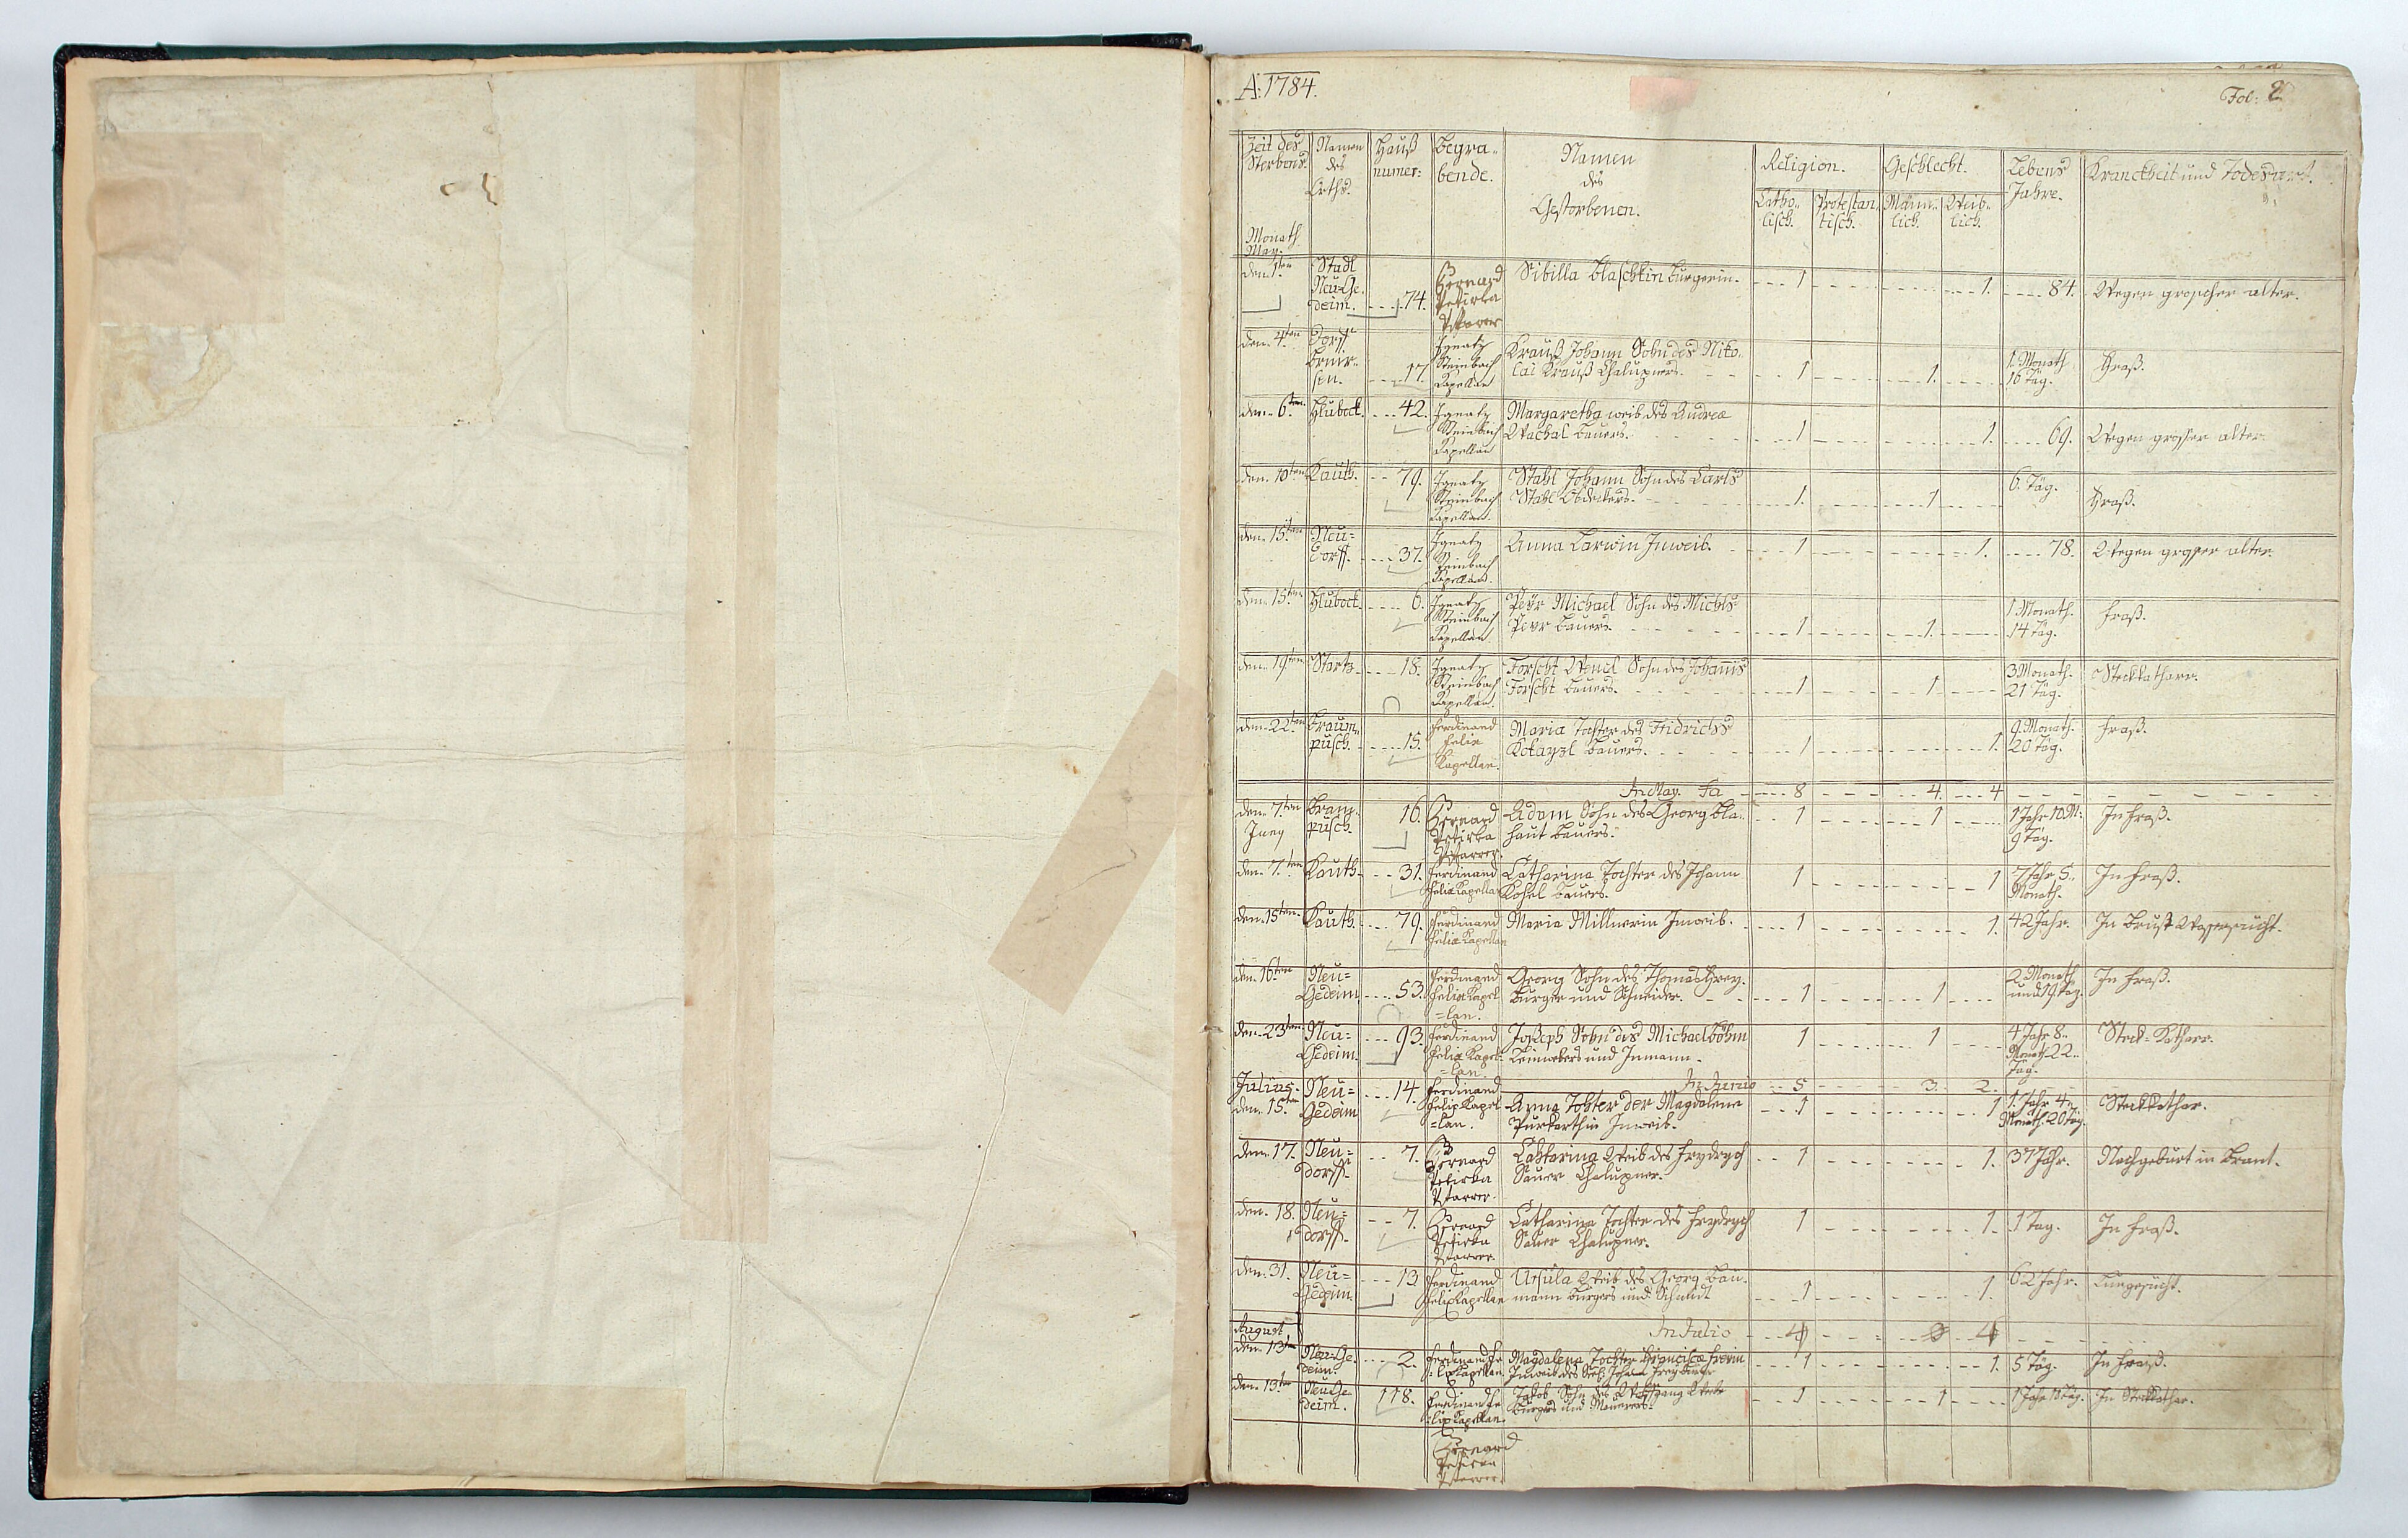 A: 1784.
Fol: 2
Zeit des Sterbens. Namen des Orths. Hauß numer: Begra- bende. Namen des Gestorbenen. Religion. Geschlecht. Lebens Jahre. Kranckheit und Todesart.
Catho- lisch. Protestan- tisch. Männ- lich. Weib- lich.
Monath May.
den 1ten Stadl Neu-Ge- deim. 74. Bernard Petirka Pfarrer Sibilla Blaschkin Burgerin. 1 1. 84. Wegen groscher alter.
den 4ten Dorff 17. Ignatz Steinbach Kapellan Krauß Johann Sohn des Niko-
lai Krauß Chalupners. 1 1. 1. Monath 16 Täg. Fraß.
den 6ten Hlubock. 42. Ignatz Steinbach Kapellan Margaretha weib des Andreæ
Wachal Bauers. 1 1. 69. Wegen grosser alter.
den 10ten Kauth. 79. Ignatz Steinbach Kapellan. Stahl Johann Sohn des Carls
Stahl Abdeckers. 1. 1 6. Täg. Fraß.
den 15ten Neu= Dorff. 37. Ignatz Steinbach Kapellan. Anna Larwin Inweib. 1 1. 78. Wegen grosser alter.
den 15ten Hlubock. 6. Ignatz Steinbach Kapellan Peyr Michael Sohn des Michls
Peyr Bauers. 1 1. 1 Monath. 14 Täg. Fraß.
den 19ten Startz 18. Ignatz Steinbach Kapellan. Forscht Wencl Sohn des Johannis
Forscht Bauers. 1 1 3 Monath. 21 Täg. Steckkatharr.
den 22ten Braum- pusch. 15. Ferdinand Felix Kapellan. Maria Tochter des Fridrichs
Bauers. 1 1. 9. Monath. 20 Täg. Fraß.
In May. Sa 8 4. 4
den 7ten Juny pusch. 16. Bernard Petirka Pfarrer. Adam Sohn des Georg Bla-
haut Bauers. 1 1 1 Jahr 10 M: 9 Täg. In Fraß.
den 7ten Kauth. 31. Ferdinand Felix Kapellan Catharina Tochter des Johann
Bauers. 1 1 7 Jahr 5. Monath. In Fraß.
den 15ten Kauth. 79. Ferdinand Felix Kapellan Maria Millnerin Inweib. 1 1. 42 Jahr. In Brust Wassersucht.
den 16ten Neu= Gedeim 53. Ferdinand Felix Kapel =lan. Georg Sohn des Thomas Frey.
Burger und Schneider. 1 1 2 Monath und 19 Täg. In Fraß.
den 23ten Neu= Gedeim. 93. Ferdinand Felix Kapel- =lan. Joseph Sohn des Michael Böhm
Leinwebers und Inmann. 1 1 4 Jahr 8. Monath 22. Täg. Steck=Katharr.
In Junio 5 3. 2.
Julius. den 15ten Neu= Gedeim 14. Ferdinand Felix Kapel =lan. Anna Tochter der Magdalena
Purkarthin Inweib. 1 1 1. Jahr 4. Monath. 20 Täg. Steckkathar.
den 17. Neu= dorff. 7. Bernard Petirka Pfarrer. Catharina Weib des Frydrych
Sauer Chalupner. 1 1. 37 Jahr. Nachgeburt in Brant.
den 18. Neu= dorff. 7. Bernard Petirka Pfarrer. Catharina Tochter des Frydrych
Sauer Chalupner. 1 1. 1 Tag. In Fraß.
den 31. Neu= Gedeim. 13 Ferdinand Felix Kapellan Ursula Weib des Georg Bau-
mann Burgers und Schmidt 1 1. 62 Jahr. Lungesucht.
In Julio 4 4
August den 13ten Neu-Ge- deim. 2. Ferdinand Fe- lix Kapellan. Magdalena Tochter Francisca Freyin
Inweib des Johann Frey 1 1. 5 Täg. In Fraiß.
den 13ten Neu-Ge- deim. 118. Ferdinand Fe- lix Kapellan. Jakob Sohn des Wolfgang
Burgers und Mauerers. 1 1 1 Jahr 10 Täg. In Steckkathar.
Bernard Petirka Pfarrer.